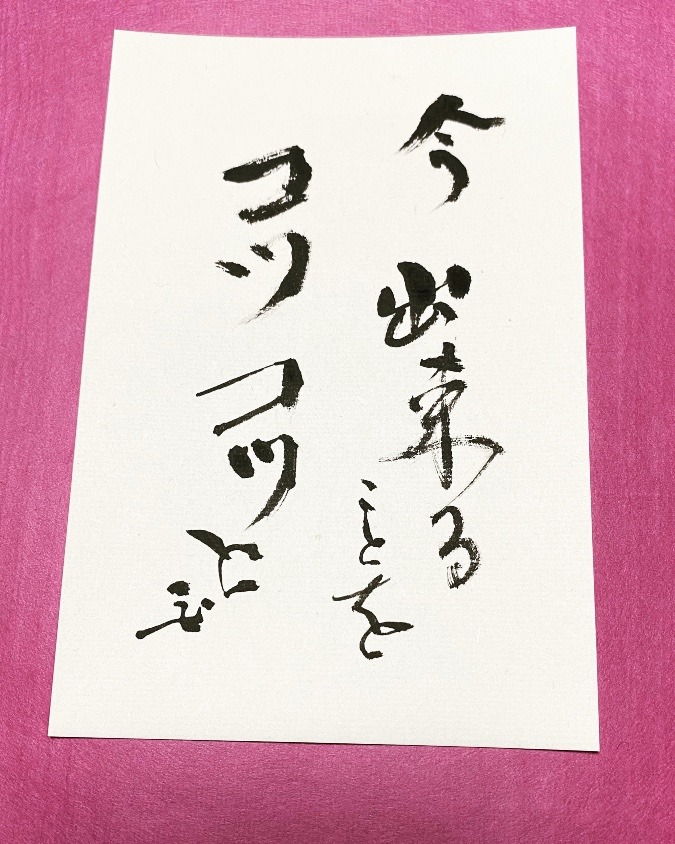 今 出来る
ことを
コツ コツと